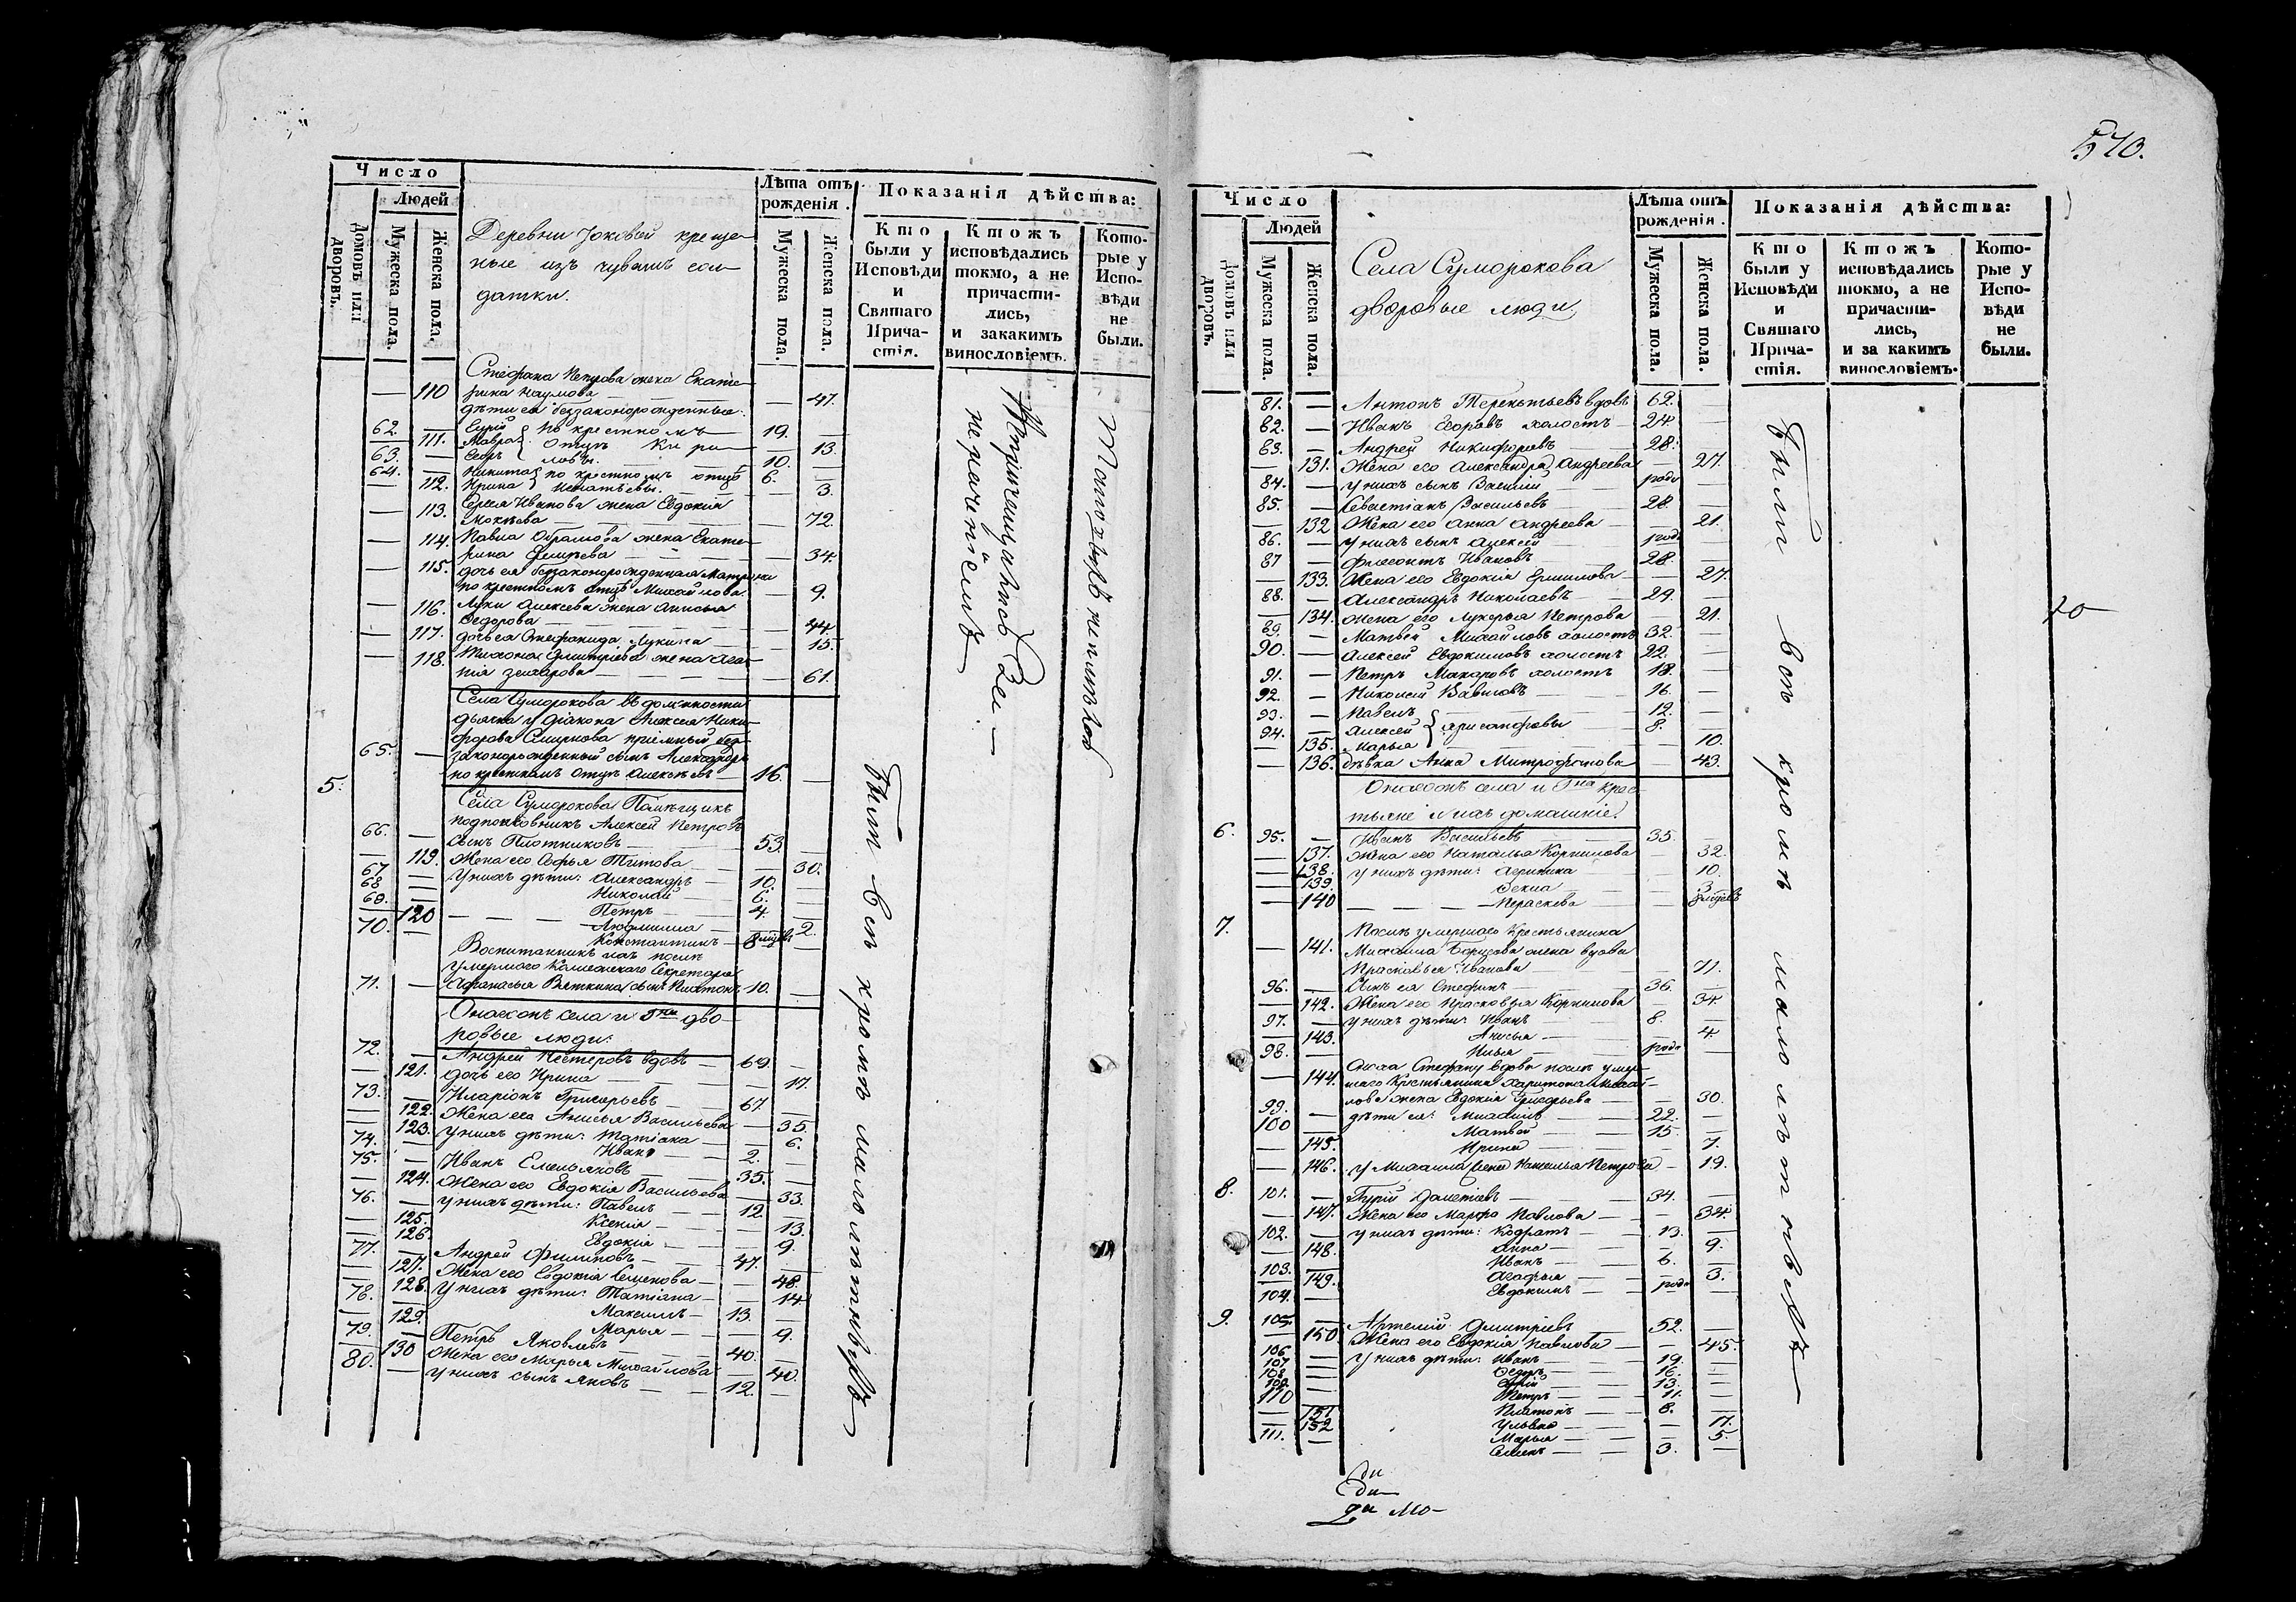 Число
Людей
Домовъ или дворовъ.
Мужеска пола.
Женска пола.
Деревни крещеные изъ чувашъ солдатки.
Лѣта отъ рожденія.
Мужеска пола.
Женска пола.
Показанія дѣйства:
Кто были у Исповѣди и Святаго Причастія.
Ктожъ исповѣдались токмо, а не причастились, и закакимъ винословіемъ.
Которые у Исповѣди не были.
110 Стефана Петрова жена Екате-
рина Наумова — 47.
дѣти ея беззаконорожденные:
62. Гурій 19.
111. Мавра по крестному 13.
63. Егоръ отцу 10.
64. Никита по крестному отцу 6.
112. Ирина Игнатьевы. 3.
113. Сергея Иванова жена Евдокия
Мокеева — 72.
114. Павла Абрамова жена Екате-
рина — 34.
115. дочь ея беззаконорожденная Матрона
по крестномъ отцѣ Михайлова 9.
116. Луки Алексеева жена Анисья
Федорова — 44.
117. дочь ея Стефанида Лукина — 15.
118. Тихона Дмитріева жена Ага-
пія Захарова — 61.
Села Суморокова въ должности
дьячка у діакона Алексея Ники-
форова Смирнова пріемный без-
65. законорожденный сынъ Александръ
по крестномъ отцѣ Алексѣевъ — 16.
5. Села Суморокова Помѣщикъ
подполковникъ Алексей Петровъ
66. сынъ Плотниковъ — 53.
119. Жена его Софья Титова — 30.
67 У нихъ дѣти: Александръ — 10.
68 Николай — 6.
69. Петръ — 4.
120 Людмилла — 2.
70. Константинъ — 8 мцвъ
Воспитанникъ ихъ послѣ
умершаго Коллежскаго Секретаря
71. Афанасья Вяткина сынъ Платонъ 10.
Онагожъ села и Гна дво-
ровые люди:
72. Андрей Нестеровъ вдовъ — 69.
121. дочь его Ирина — 17.
73. Иларіонъ Григорьевъ — 67.
122. Жена его Анисья Васильева — 35.
123. У нихъ дѣти: Татіана — 6.
74. Иванъ — 2.
75. Иванъ Емельяновъ — 35.
124. Жена его Евдокія Васильева — 33.
76. у нихъ дѣти: Павелъ — 12
125. Ксенія — 13.
126. Евдокія — 9.
77. Андрей Филиповъ — 47.
127. Жена его Евдокія Семенова — 48.
128. У нихъ дѣти: Татіана — 14
78. Максимъ — 13.
129. Марья — 9.
79. Петръ Яковлевъ — 40.
130 Жена его Марья Михайлова 40.
80. у нихъ сынъ Яковъ — 12.
Были вси кромѣ малолѣтнѣхъ
570.
Число
Людей
Домовъ или дворовъ.
Мужеска пола.
Женска пола.
Села Суморокова
дворовые люди.
Лѣта отъ рожденія.
Мужеска пола.
Женска пола.
Показанія дѣйства:
Кто были у Исповѣди и Святаго Причастія.
Ктожъ исповѣдались токмо, а не причастились, и за какимъ винословіемъ.
Которые у Исповѣди не были.
81. — Антонъ Терентьевъ вдовъ 62.
82. — Иванъ Егоровъ холостъ — 24
83. — Андрей Никифоровъ — 28.
131. Жена его Александра Андреева 27.
84. у нихъ сынъ Василій — рода
85. — Севастіанъ Васильевъ — 28.
132 Жена его Анна Андреева — 21.
86. у нихъ сынъ Алексей — рода
87 — Иванов 28.
133. Жена его Евдокія Ермилова — 27.
88. — Александръ Николаевъ — 29.
134. Жена его Лукерья Петрова — 21.
89. — Матвей Михайловъ холостъ 32.
90. — Алексей Евдокимовъ холостъ 22.
91. — Петръ Макаровъ холостъ 18.
92. — Николай Вавиловъ — 16.
93. — Павелъ 12.
94. — Алексей Хрисанфовы 8.
135. Марья 10.
136. дѣвка Анна Митрофанова — 43.
Онагожъ села и Гна крес-
тьяне и ихъ домашніе.
6. 95. — Иванъ Васильевъ — 35.
137. Жена его Наталья Корнилова 32.
138. у нихъ дѣти: Агрипина — 10.
139. Фекла — 3
140 Параскева — 8 мцовъ
7. Послѣ умершаго Крестьянина
141. Михаила Борисова жена вдова
Прасковья Иванова — 71.
96. Сынъ ея Стефанъ — 36.
142. Жена его Прасковья Корнилова 34.
97. у нихъ дѣти: Иванъ — 8.
143. Анисья — 4.
98. Илья — рода
Сноха Стефану вдова послѣ умер-
144. шаго Крестьянина Харитона Михай-
лова жена Евдокія Григорьева — 30.
99. дѣти ея: Михаилъ — 22.
100 Матвей — 15.
145. Ирина — 7.
146. у Михаила жена Наталья Петрова — 19.
8. 101. Гурій — 34.
147. Жена его Марфа Павлова — 34.
102. у нихъ дѣти: Кодратъ — 13.
148. Анна — 9.
103. Иванъ — 6.
149. Агафья — 3.
104. Евдокимъ — рода
9. 105. Артемій Дмитріевъ — 52.
150 Жена его Евдокія Павлова — 45.
106 У нихъ дѣти: Иванъ — 19.
107 Федоръ — 16.
108 13.
109 Петръ — 11.
110 Платонъ — 8.
151 Ульяна — 17.
152 Марья — 5.
111. Семенъ — 3.
Были вси кромѣ малолѣтнѣхъ